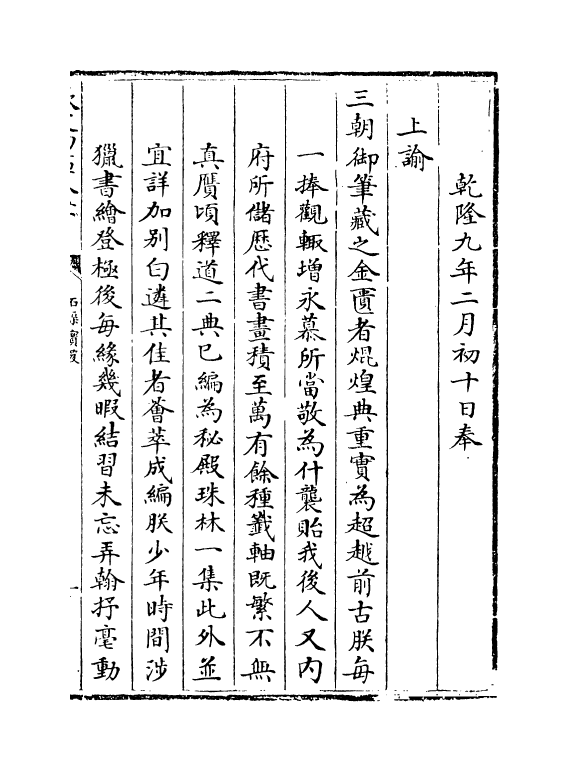 乾隆九年二月初十日奉
上諭
三朝御筆藏之金匱者焜煌典重實為超越前古朕每
一捧觀輙増永慕所當敬為什襲貽我後人又内
府所儲歴代書畫積至萬有餘種籖軸既繁不無
真贋頃釋道二典已編為秘殿珠林一集此外並
宜詳加别白遴其佳者薈萃成編朕少年時間渉
獵書繪登極後每緣幾暇結習未忘弄翰抒毫動
石渠寶笈
一